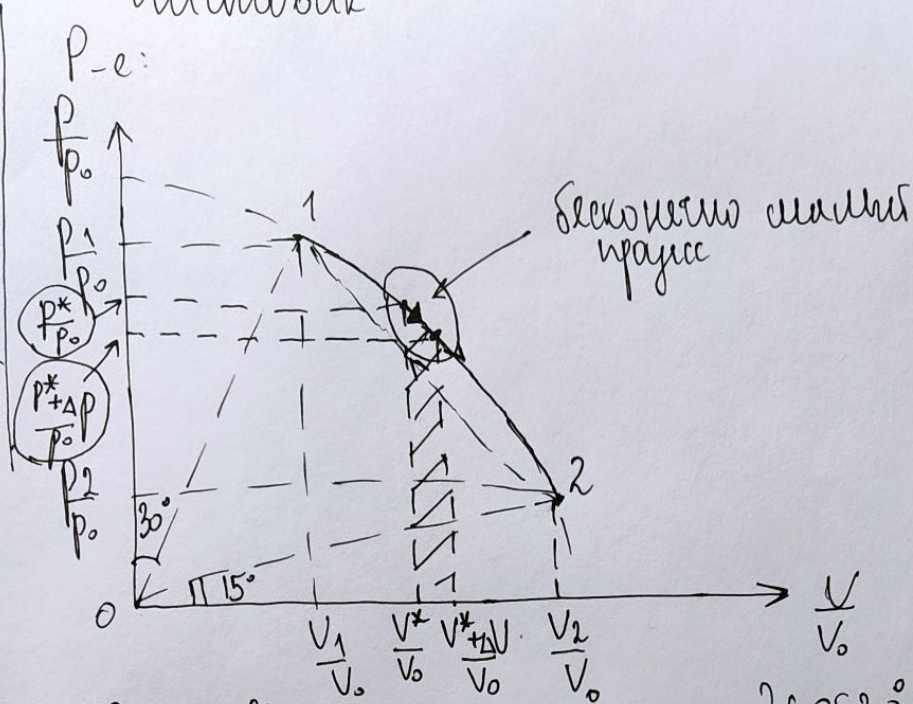 Р-е:
P/P₀
P1/P₀
P*/P₀
P*+ΔP/P₀
P2/P₀
1
бесконечно малый
процесс
2
30°
15°
0
V1/V₀
V*/V₀
V*+ΔV/V₀
V2/V₀
V/V₀